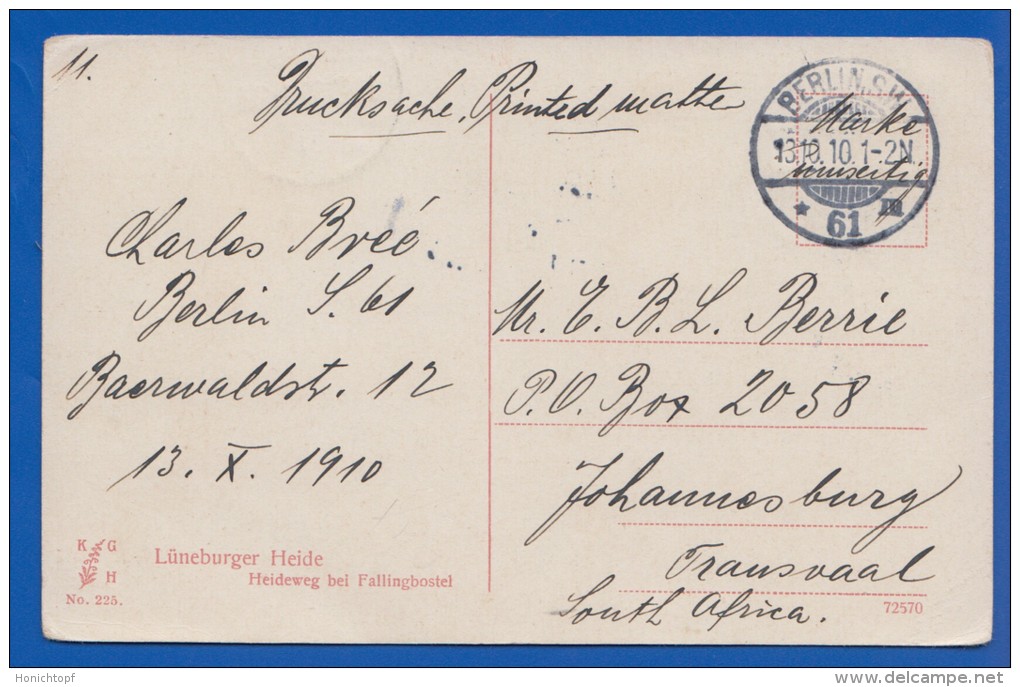 11.
Drucksache. Printed matter
BERLIN. S.W.
13.10.10. 1-2N.
* 61 m
Marke
Charles Bréé
Berlin S. 61
Baerwaldst. 12
13. X. 1910
Mr. E. B. L. Berrie
P.O. Box 2058
Johannesburg
Transvaal
South Africa.
K G
H
No. 225.
Lüneburger Heide
Heideweg bei Fallingbostel
72570
Honichtopf